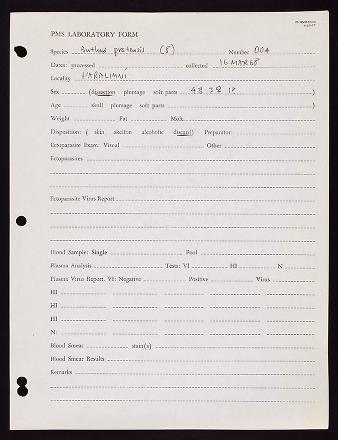 PMS LABORATORY FORM
Species Anthus pratensis (8) Number 004
Dates: processed collected 16 MAR 68
Locality PARALIMNI
Sex (dissection plumage soft parts 4♂ 3♀ 1? )
Age skull plumage soft parts )
Weight Fat Molt
Disposition: ( skin skelton alcoholic discard) Preparator
Ectoparasite Exam: Visual Other
Ectoparasites
Ectoparasite Virus Report
Blood Sample: Single Pool
Plasma Analysis Tests: VI HI N
Plasma Virus Report. VI: Negative Positive Virus
HI
HI
HI
N:
Blood Smear stain(s)
Blood Smear Results
Remarks